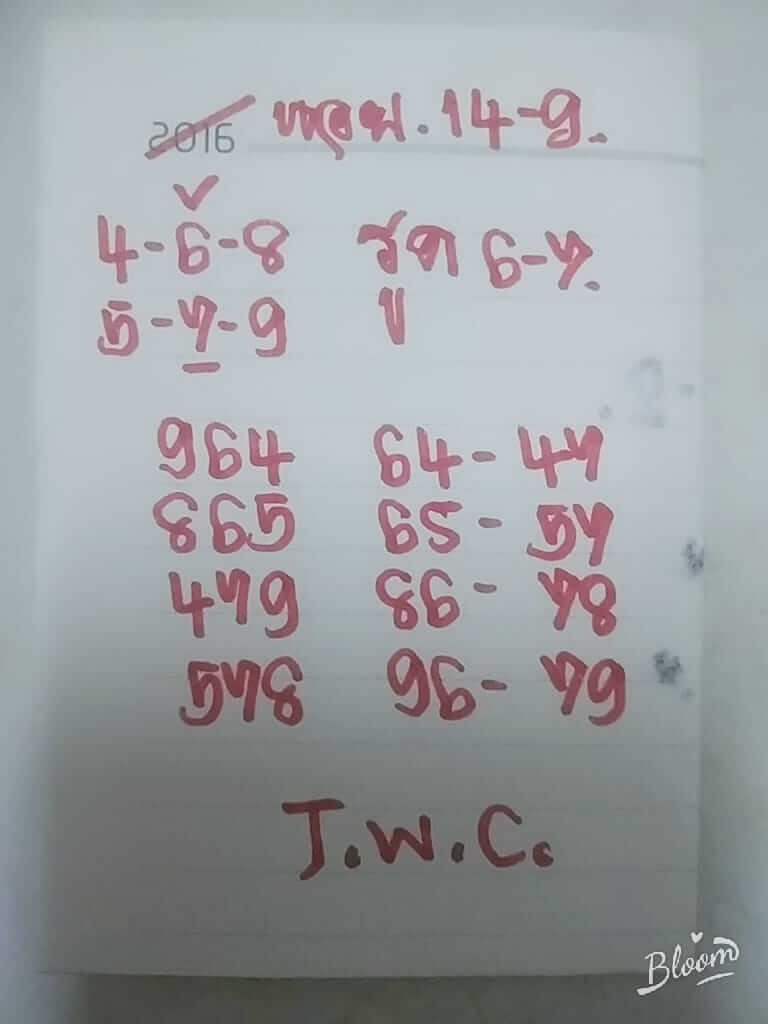 2016 หอย. 14-9.
4-6-8 รูด 6-7.
5-7-9
964 64- 47
865 65- 57
479 86- 78
578 96- 79
J.W.C.
Bloom